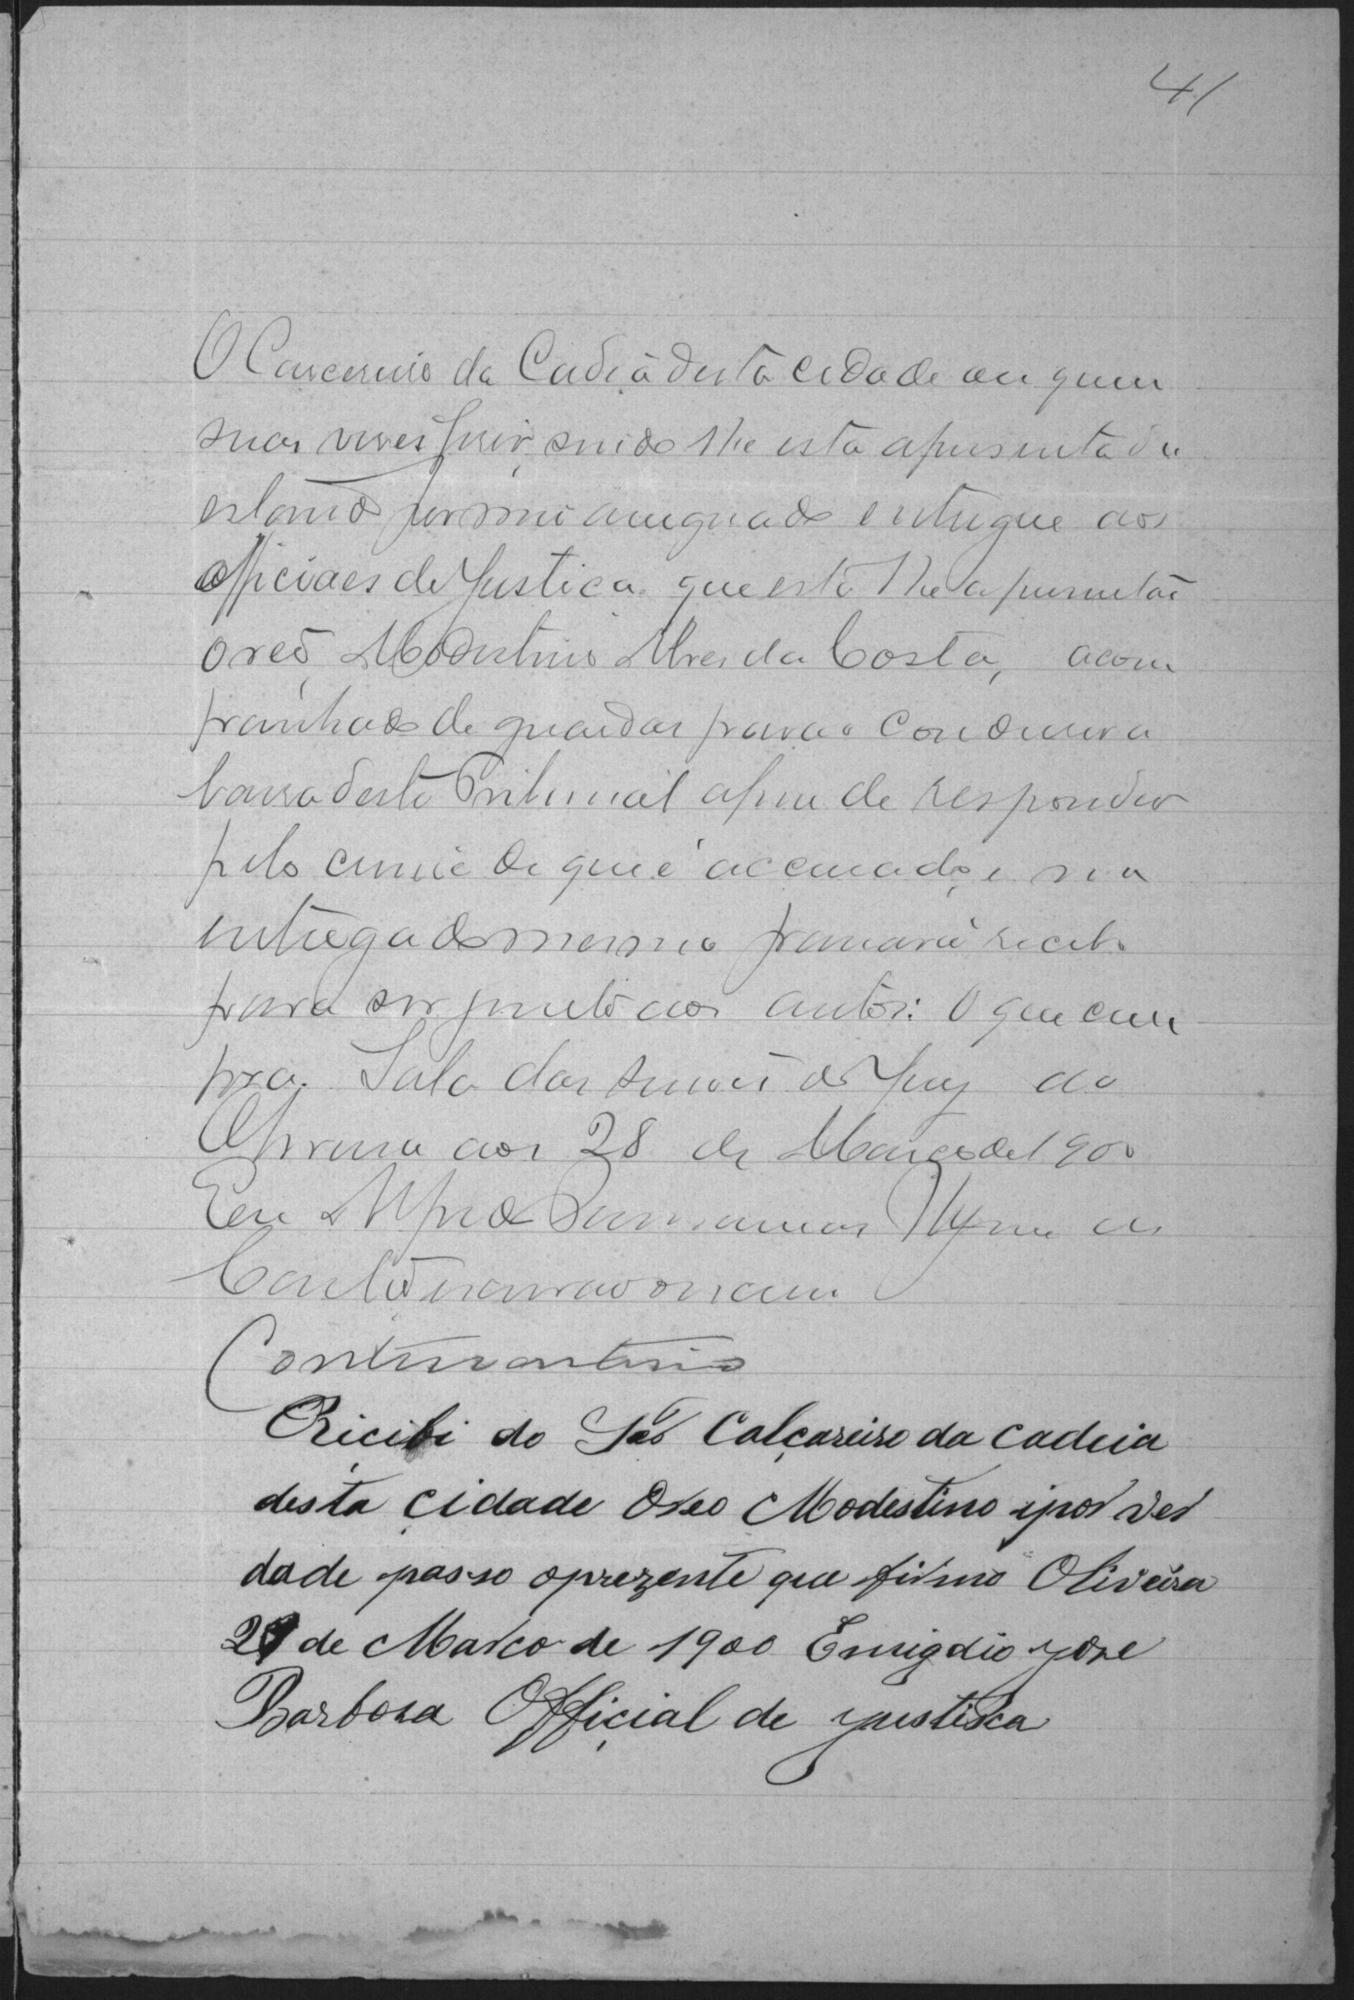 41
O Carcereiro da Cadeia desta cidade ou quem
suas vezes fizer, sendo lhe esta apresentada
estando por mim assignado entregue aos
officiaes de Justica que esta lhe apresentar
o reo, Modestino Alves da Costa, acom
panhado de guardas para o conduzir a
barra deste Tribunal afim de responder
pelo crime de que é accusado, e na
entrega do mesmo passará recibo
para ser junto aos autos: O que cum
pra. Sala das sessões do Jury da
aos 28 de Março de 1900
Eu
Recibi do Calçareiro da cadeia
desta cidade Oreo Modestino ipor ver
dade passo oprezente que firmo Oliveira
de Marco de 1900 Emigdio yose
Barbosa Official de yustisca